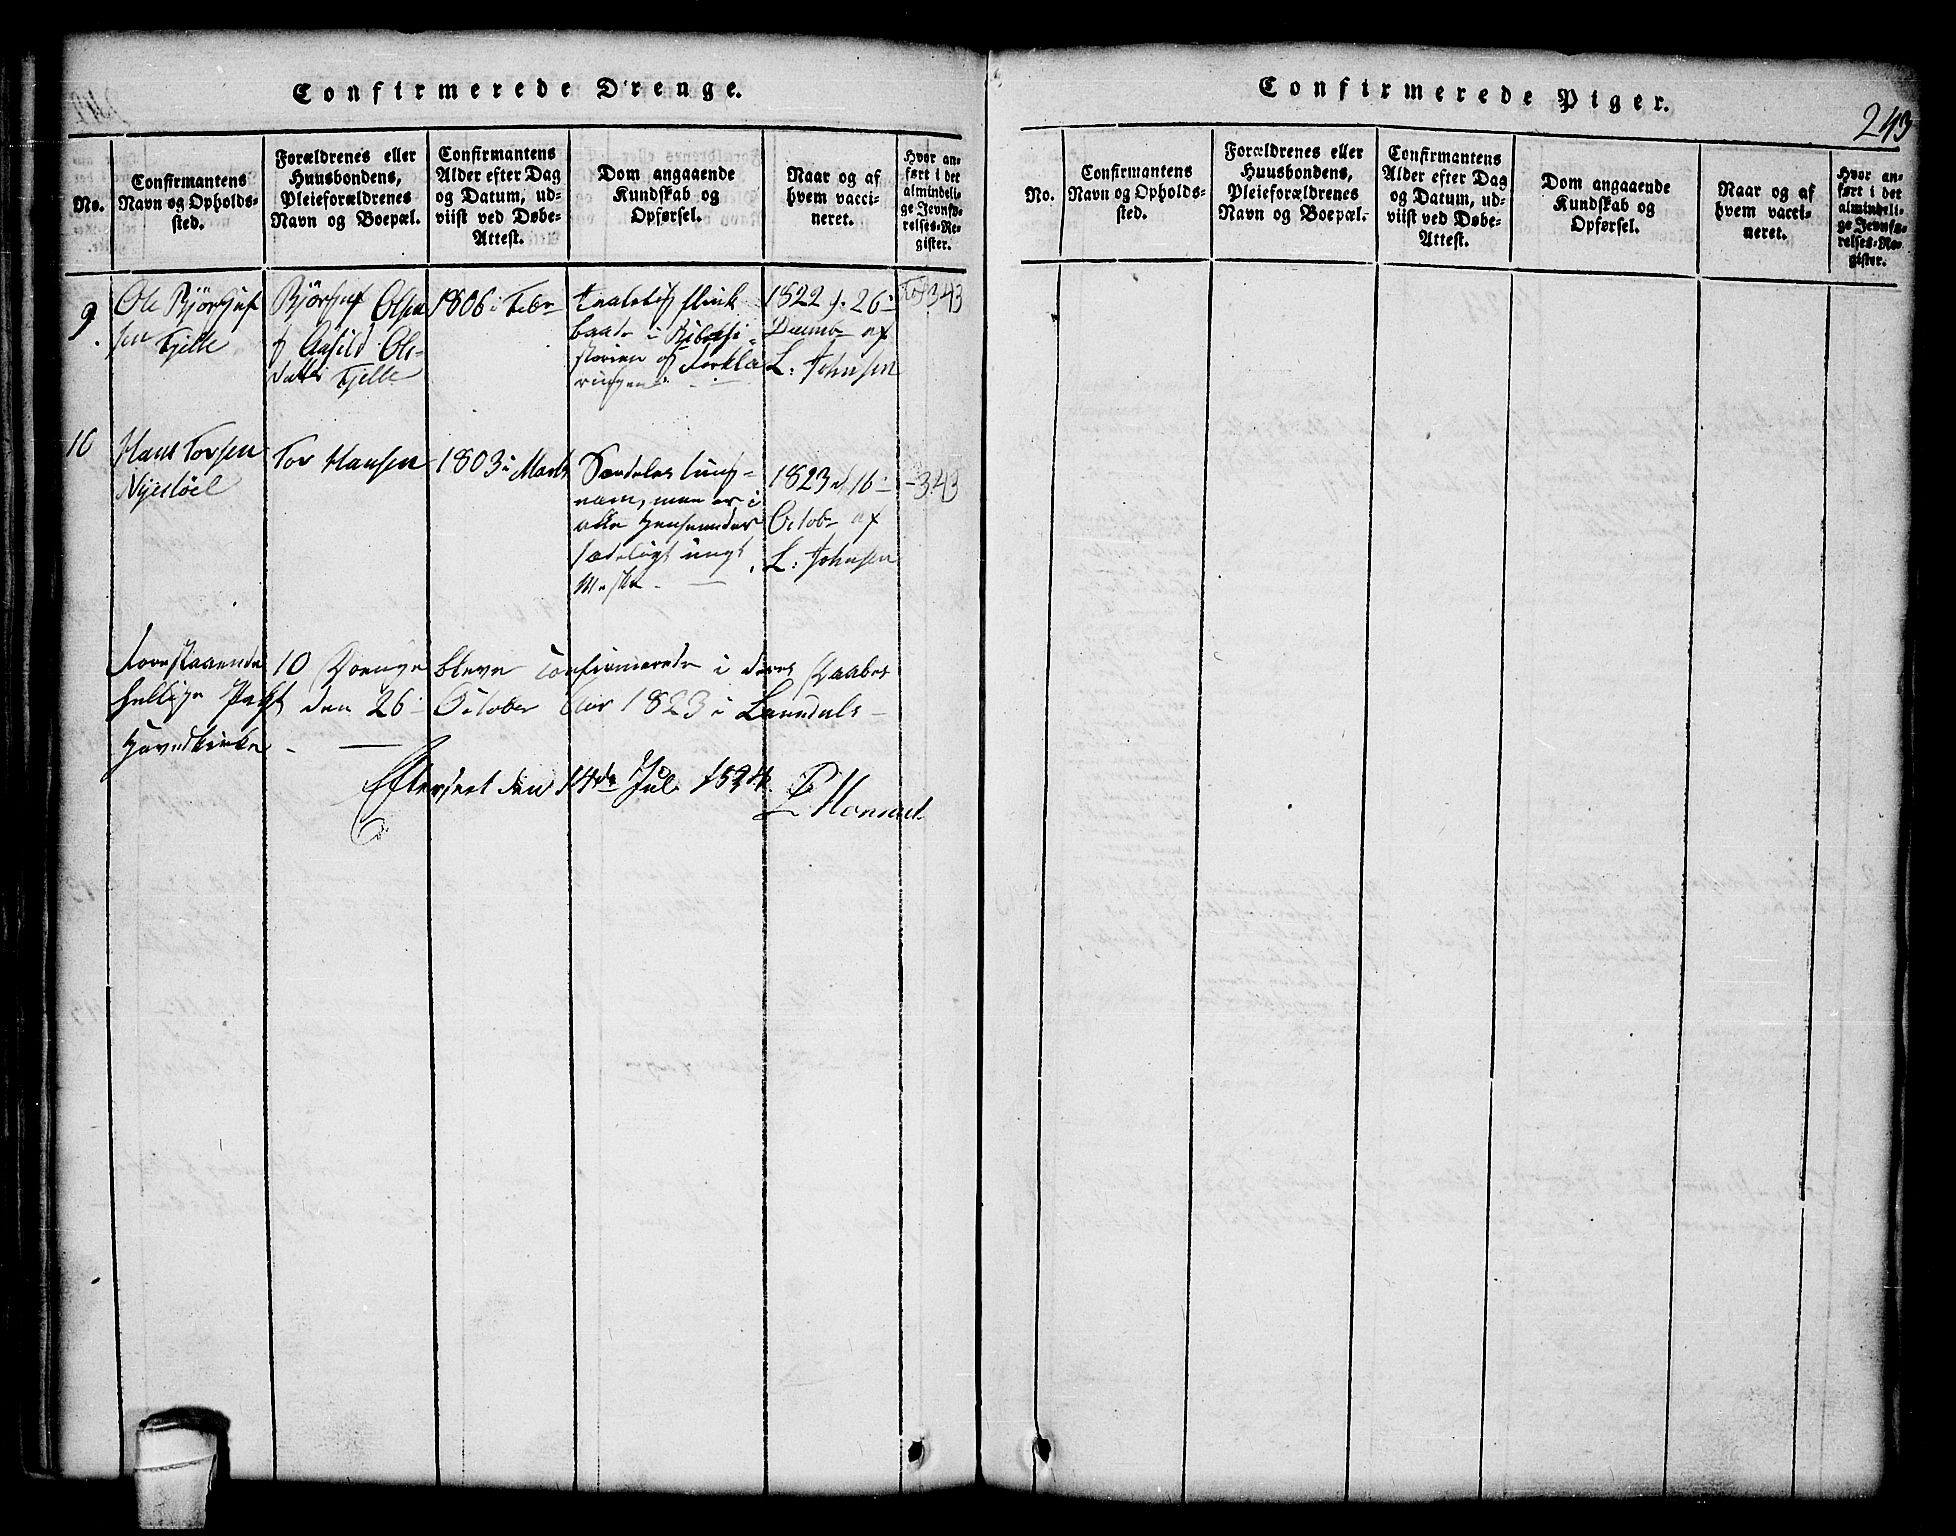 Confirmerede Drenge.
No.
Confirmantens
Navn og Opholds-
sted.
Forældrenes eller
Huusbondens,
Pleieforældrenes
Navn og Boepæl.
Confirmantens
Alder efter Dag
og Datum, ud-
viist ved Døbe-
Attest.
Dom angaaende
Kundskab og
Opførsel.
Naar og af
hvem vacci-
neret.
Hvor an-
ført i det
almindeli-
ge Jevnfø-
relses-Re-
gister.
9.
Ole Björguf
sen Fjelle
Björguf Olsen
Aasild Ols-
datter Fjelle
1806 i Febr
flink
baade i Bibelhi-
storien og Forkla
ringen
1822 26
af
L. Johnsen
343
10
Hans Torsen
Nystöel
Tor Hansen
1803 i Marts
men er i
alle Henseender
sædeligt ungt
1823 d 16
Octobr af
L. Johnsen
- 343
Forestaaende 10 Drenge bleve Confirmerede i deres Daabes
hellige Pagt den 26 October Aar 1823 i Laurdals
Hovedkirke
Efterseet den 14de Juli 1824.
Confirmerede Piger.
243
No.
Confirmantens
Navn og Opholds-
sted.
Forældrenes eller
Huusbondens,
Pleieforældrenes
Navn og Boepæl.
Confirmantens
Alder efter Dag
og Datum, ud-
viist ved Døbe-
Attest.
Dom angaaende
Kundskab og
Opførsel.
Naar og af
hvem vacci-
neret.
Hvor an-
ført i det
almindeli-
ge Jevnfø-
relses-Re-
gister.